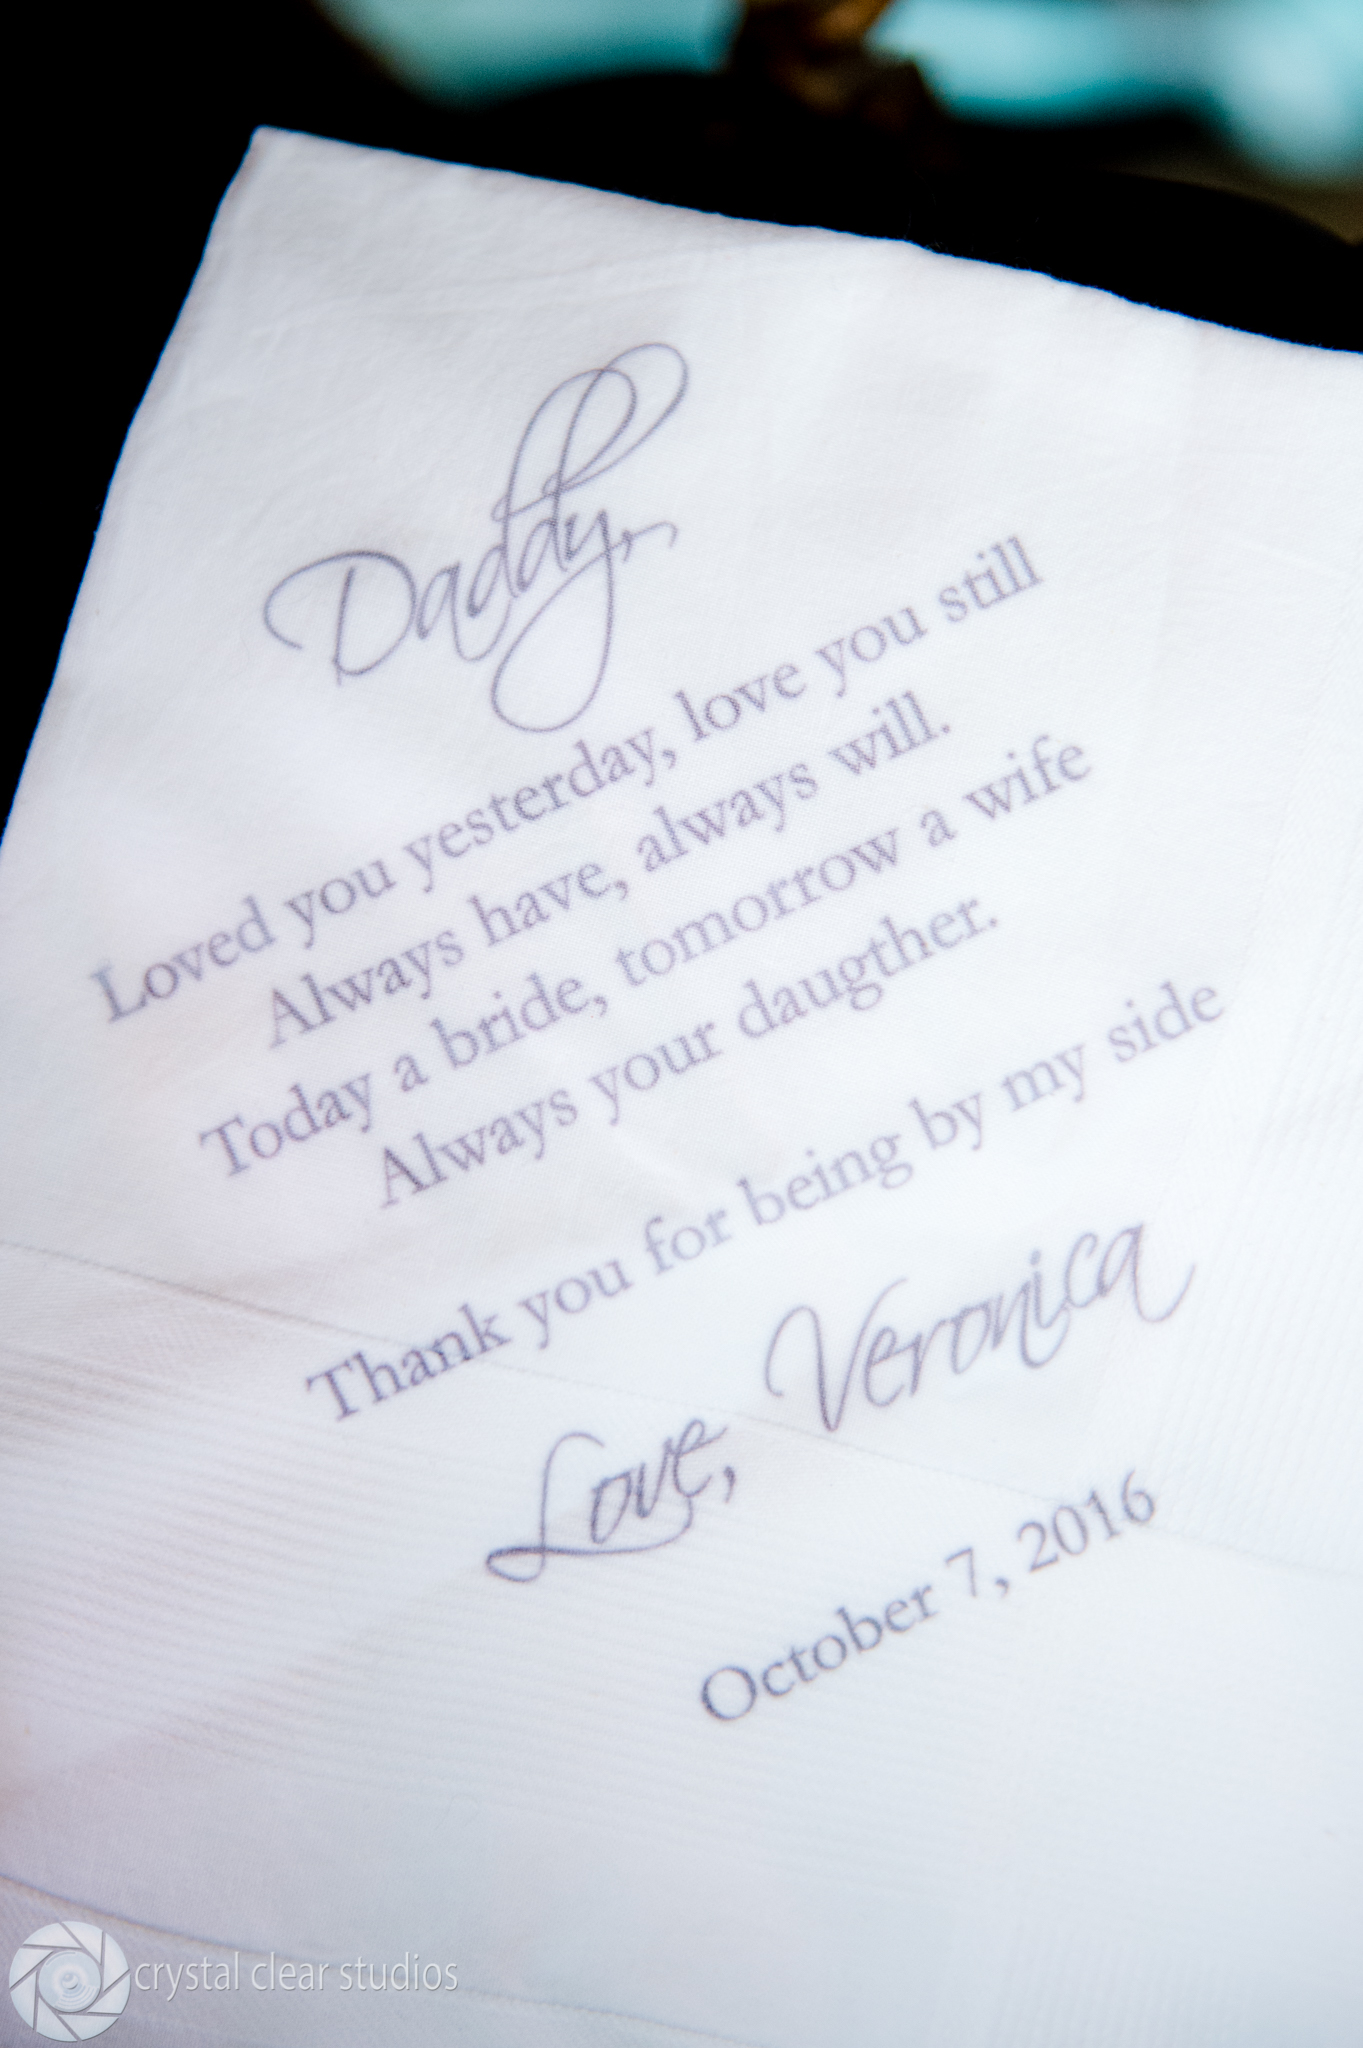 Daddy,
Loved you yesterday, love you still
Always have, always will.
Today a bride, tomorrow a wife
Always your daugther.
Thank you for being by my side
Love, Veronica
October 7, 2016
crystal clear studios